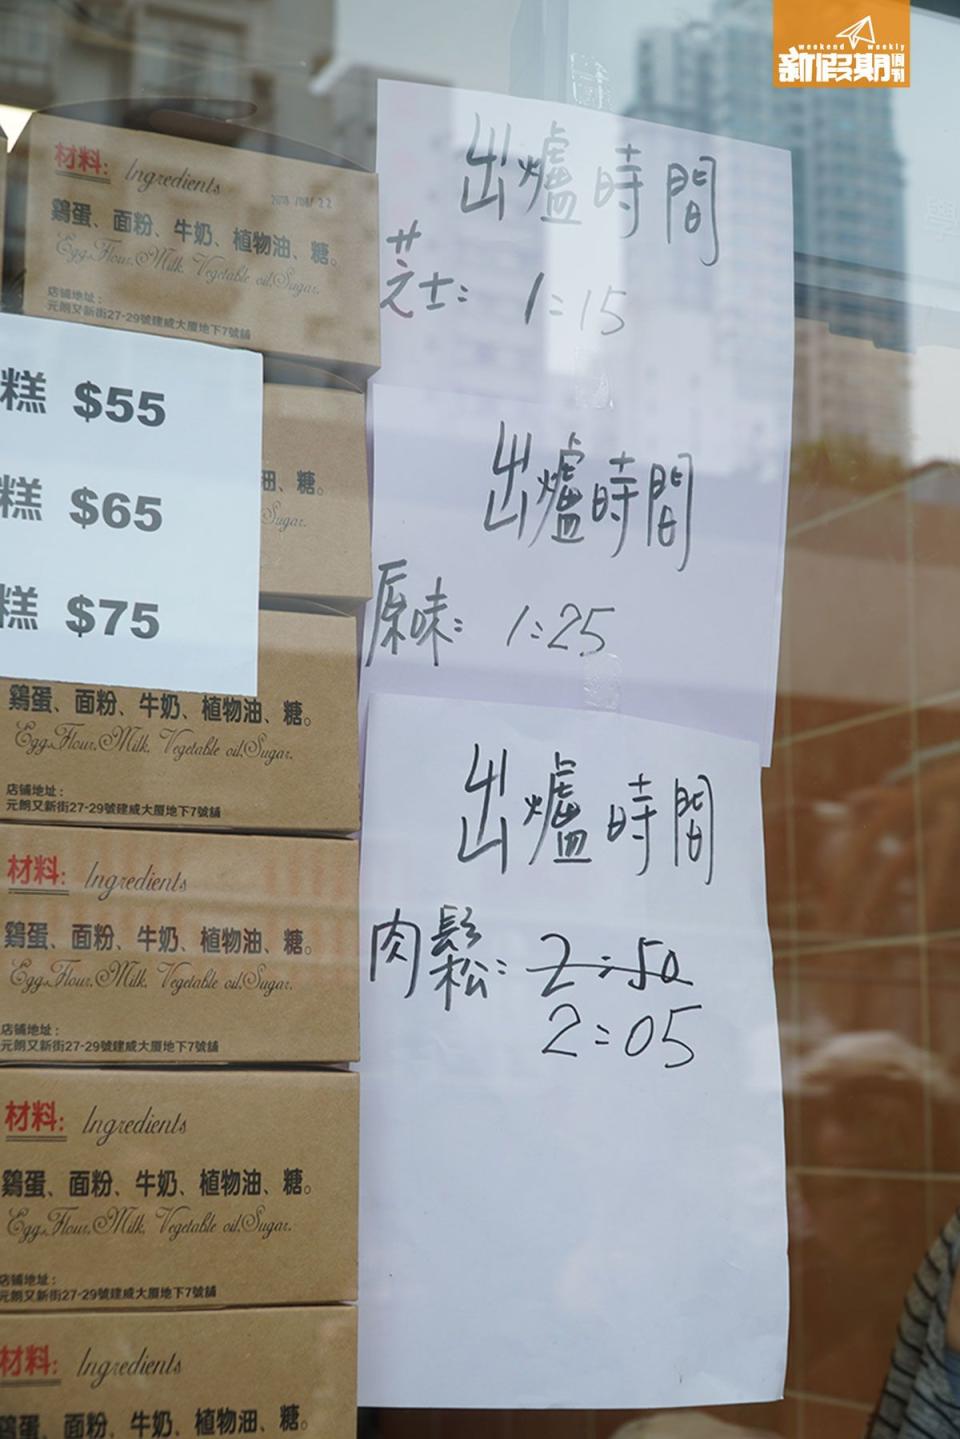 weekend weekly
新假期周刊
材料: Ingredients
2018/08/22
鷄蛋、面粉、牛奶、植物油、糖。
Egg,Flour,Milk, Vegetable oil,Sugar.
店铺地址:
元朗又新街27-29號建威大厦地下7號舖
糕 $55
糕 $65
糕 $75
油、糖。
Sugar.
鷄蛋、面粉、牛奶、植物油、糖。
Egg,Flour,Milk, Vegetable oil,Sugar.
店铺地址:
元朗又新街27-29號建威大厦地下7號舖
材料: Ingredients
鷄蛋、面粉、牛奶、植物油、糖。
Egg,Flour,Milk, Vegetable oil,Sugar.
店铺地址:
元朗又新街27-29號建威大厦地下7號舖
材料: Ingredients
鷄蛋、面粉、牛奶、植物油、糖。
Egg,Flour,Milk, Vegetable oil,Sugar.
店铺地址:
元朗又新街27-29號建威大厦地下7號舖
材料: Ingredients
鷄蛋、面粉、牛奶、植物油、糖。
出爐時間
芝士: 1:15
出爐時間
原味: 1:25
出爐時間
肉鬆: 2:50
2:05